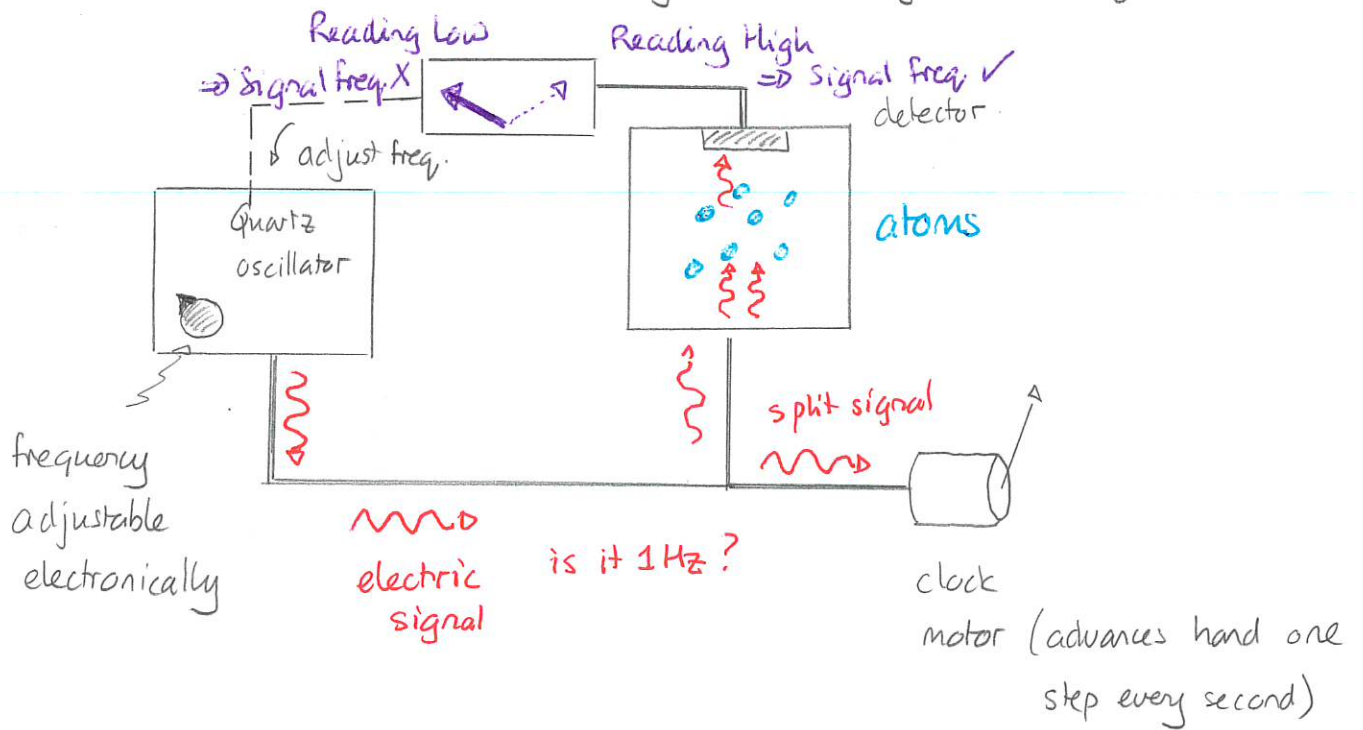 Reading Low
⇒ Signal freq. X
Reading High
⇒ Signal freq. ✓
detector.
adjust freq.
Quartz
oscillator
atoms
split signal
frequency
adjustable
electronically
electric
signal
is it 1Hz?
clock
motor (advances hand one
step every second)